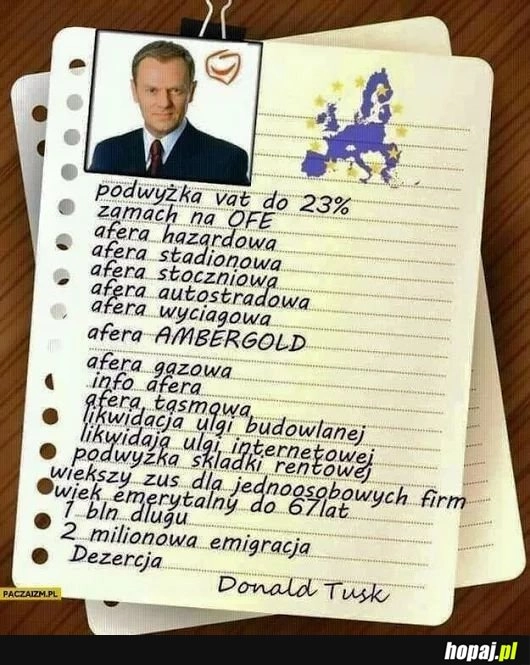 podwyżka vat do 23%
zamach na OFE
afera hazardowa
afera stadionowa
afera stoczniowa
afera autostradowa
afera wyciagowa
afera AMBERGOLD
afera gazowa
info afera
afera taśmowa
likwidacja ulgi budowlanej
likwidają ulgi internetowej
podwyżka składki rentowej
wiekszy zus dla jednoosobowych firm
wiek emerytalny do 67lat
1 bln dlugu
2 milionowa emigracja
Dezercja
Donald Tusk
PACZAIZM.PL
hopaj.pl